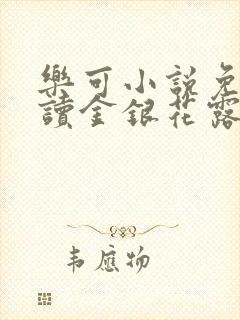 樂可小說免
讀金銀花露
韦應物